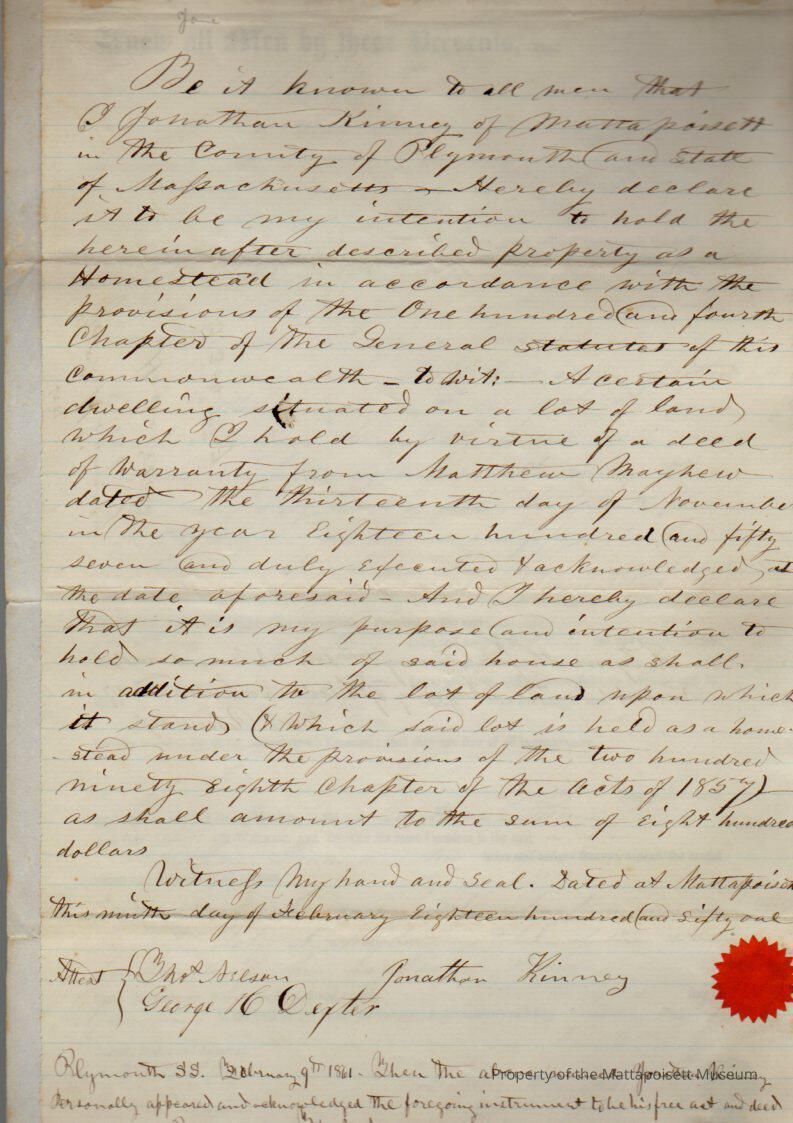 Know all Men by these Presents,
Be it known to all men that
I Jonathan Kinney of Mattapoisett
in the County of Plymouth and State
of Massachusetts – Hereby declare
it to be my intention to hold the
hereinafter described property as a
Homestead in accordance with the
provisions of the One hundred and fourth
Chapter of the General statutes of this
Commonwealth – to wit: – A certain
dwelling situated on a lot of land
which I hold by virtue of a deed
of Warranty from Matthew Mayhew
dated the thirteenth day of November
in the year Eighteen hundred and fifty
seven and duly Executed & acknowledged, at
the date aforesaid – And I hereby declare
that it is my purpose and intention to
hold so much of said house as shall
in addition to the lot of land upon which
it stands (& which said lot is held as a home-
-stead under the provisions of the two hundred
ninety Eighth Chapter of the Acts of 1857)
as shall amount to the sum of Eight hundred
dollars
Witness my hand and seal. Dated at Mattapoisett
this ninth day of February Eighteen hundred and sixty one
Attest Thos Nelson Jonathan Kinney
George H Dexter
Plymouth SS. February 9th 1861. Then the above Jonathan Kinney
Personally appeared and acknowledged the foregoing instrument to be his free act and deed
Property of the Mattapoisett Museum